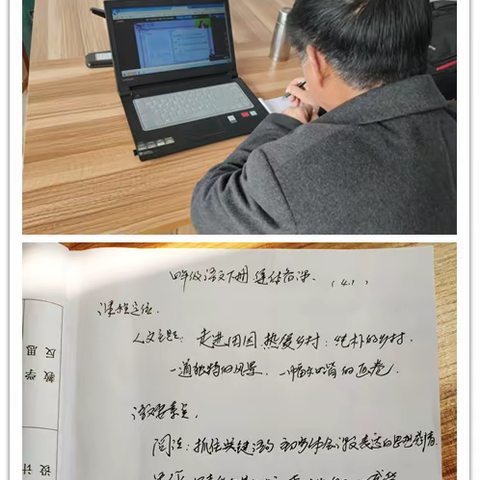 四年级语文下册 集体备课 (4.1)
课程定位
人文主题：走进田园 热爱乡村：纯朴的乡村，
一道独特的风景，一幅
的画卷。
语文要素：
阅读：抓住关键语句 初步体会课文表达的思想感情
教学反思
设计